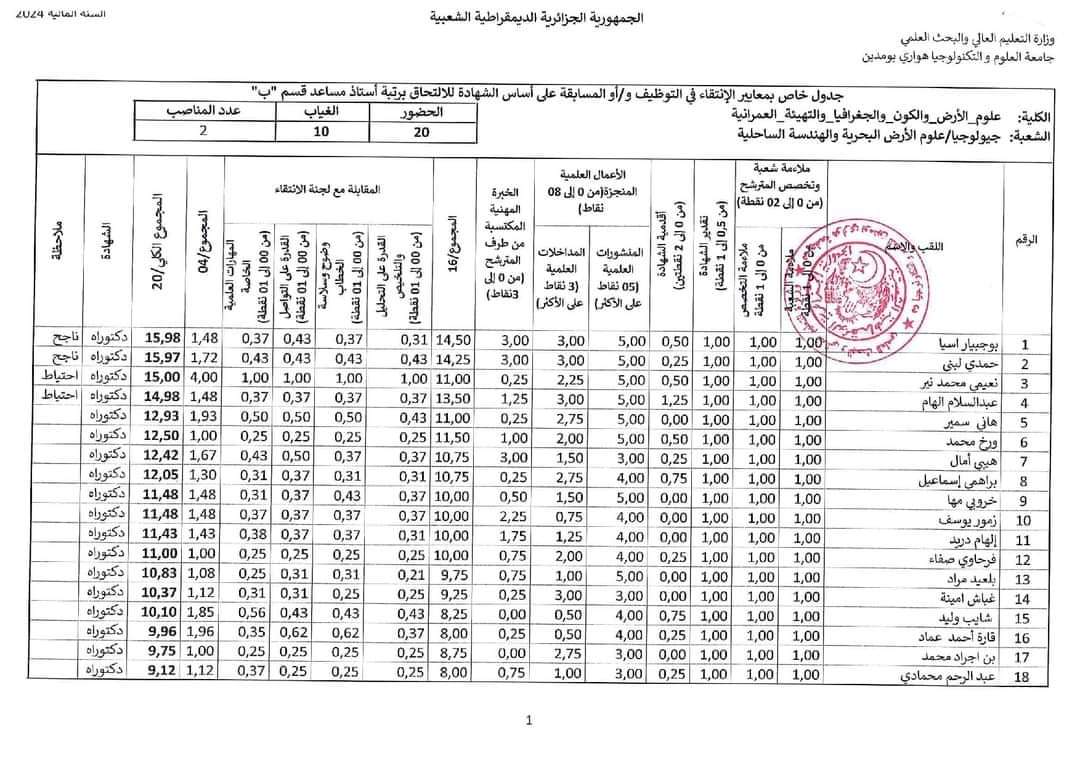 السنة المالية 2024
الجمهورية الجزائرية الديمقراطية الشعبية
وزارة التعليم العالي والبحث العلمي
جامعة العلوم و التكنولوجيا هواري بومدين
جدول خاص بمعايير الإنتقاء في التوظيف و/أو المسابقة على أساس الشهادة للالتحاق برتبة أستاذ مساعد قسم "ب"
الكلية: علوم_الأرض_والكون_والجغرافيا_والتهيئة_العمرانية
الشعبة: جيولوجيا/علوم الأرض البحرية والهندسة الساحلية
الحضور الغياب عدد المناصب
20 10 2
الرقم
اللقب والإسم
ملاءمة شعبة وتخصص المترشح (من 0 إلى 02 نقطة)
ملاءمة الشعبة من 0 إلى 1 نقطة
ملاءمة التخصص من 0 إلى 1 نقطة
تقدير الشهادة (من 0,5 إلى 1 نقطة)
أقدمية الشهادة (من 0 إلى 2 نقطتين)
الأعمال العلمية المنجزة(من 0 إلى 08 نقاط)
المنشورات العلمية (05 نقاط على الأكثر)
المداخلات العلمية (3 نقاط على الأكثر)
الخبرة المهنية المكتسبة من طرف المترشح (من 0 إلى 3نقاط)
المجموع/16
المقابلة مع لجنة الانتقاء
القدرة على التحليل والتلخيص (من 00 إلى 01 نقطة)
وضوح وسلاسة الخطاب (من 00 إلى 01 نقطة)
القدرة على التواصل (من 00 إلى 01 نقطة)
المهارات العلمية الخاصة (من 00 إلى 01 نقطة)
المجموع/04
المجموع الكلي/20
الشهادة
ملاحظة
1 بوجبيار اسيا 1,00 1,00 1,00 0,50 5,00 3,00 3,00 14,50 0,31 0,37 0,43 0,37 1,48 15,98 دكتوراه ناجح
2 حمدي لبنى 1,00 1,00 1,00 0,25 5,00 3,00 3,00 14,25 0,43 0,43 0,43 0,43 1,72 15,97 دكتوراه ناجح
3 نعيمي محمد نير 1,00 1,00 1,00 0,50 5,00 2,25 0,25 11,00 1,00 1,00 1,00 1,00 4,00 15,00 دكتوراه احتياط
4 عبدالسلام الهام 1,00 1,00 1,00 1,25 5,00 3,00 1,25 13,50 0,37 0,37 0,37 0,37 1,48 14,98 دكتوراه احتياط
5 هاني سمير 1,00 1,00 1,00 0,00 5,00 2,75 0,25 11,00 0,43 0,50 0,50 0,50 1,93 12,93 دكتوراه
6 ورخ محمد 1,00 1,00 1,00 0,50 5,00 2,00 1,00 11,50 0,25 0,25 0,25 0,25 1,00 12,50 دكتوراه
7 هبي أمال 1,00 1,00 1,00 0,25 3,00 1,50 3,00 10,75 0,37 0,37 0,50 0,43 1,67 12,42 دكتوراه
8 براهمي إسماعيل 1,00 1,00 1,00 0,75 4,00 2,75 0,25 10,75 0,31 0,31 0,37 0,31 1,30 12,05 دكتوراه
9 خروبي مها 1,00 1,00 1,00 0,00 5,00 1,50 0,50 10,00 0,37 0,43 0,37 0,31 1,48 11,48 دكتوراه
10 زمور يوسف 1,00 1,00 1,00 0,00 4,00 0,75 2,25 10,00 0,37 0,37 0,37 0,37 1,48 11,48 دكتوراه
11 إلهام دريد 1,00 1,00 1,00 0,00 4,00 1,25 1,75 10,00 0,31 0,37 0,37 0,38 1,43 11,43 دكتوراه
12 فرحاوي صفاء 1,00 1,00 1,00 0,25 4,00 2,00 0,75 10,00 0,25 0,25 0,25 0,25 1,00 11,00 دكتوراه
13 بلعيد مراد 1,00 1,00 1,00 0,00 5,00 1,00 0,75 9,75 0,21 0,31 0,31 0,25 1,08 10,83 دكتوراه
14 غباش امينة 1,00 1,00 1,00 0,00 3,00 3,00 0,25 9,25 0,25 0,25 0,31 0,31 1,12 10,37 دكتوراه
15 شايب وليد 1,00 1,00 1,00 0,75 4,00 0,50 0,00 8,25 0,43 0,43 0,43 0,56 1,85 10,10 دكتوراه
16 قارة أحمد عماد 1,00 1,00 1,00 0,25 4,00 0,50 0,25 8,00 0,37 0,62 0,62 0,35 1,96 9,96 دكتوراه
17 بن اجراد محمد 1,00 1,00 1,00 0,00 3,00 2,75 0,00 8,75 0,25 0,25 0,25 0,25 1,00 9,75 دكتوراه
18 عبد الرحم محمادي 1,00 1,00 1,00 0,25 3,00 1,00 0,75 8,00 0,25 0,25 0,25 0,37 1,12 9,12 دكتوراه
1